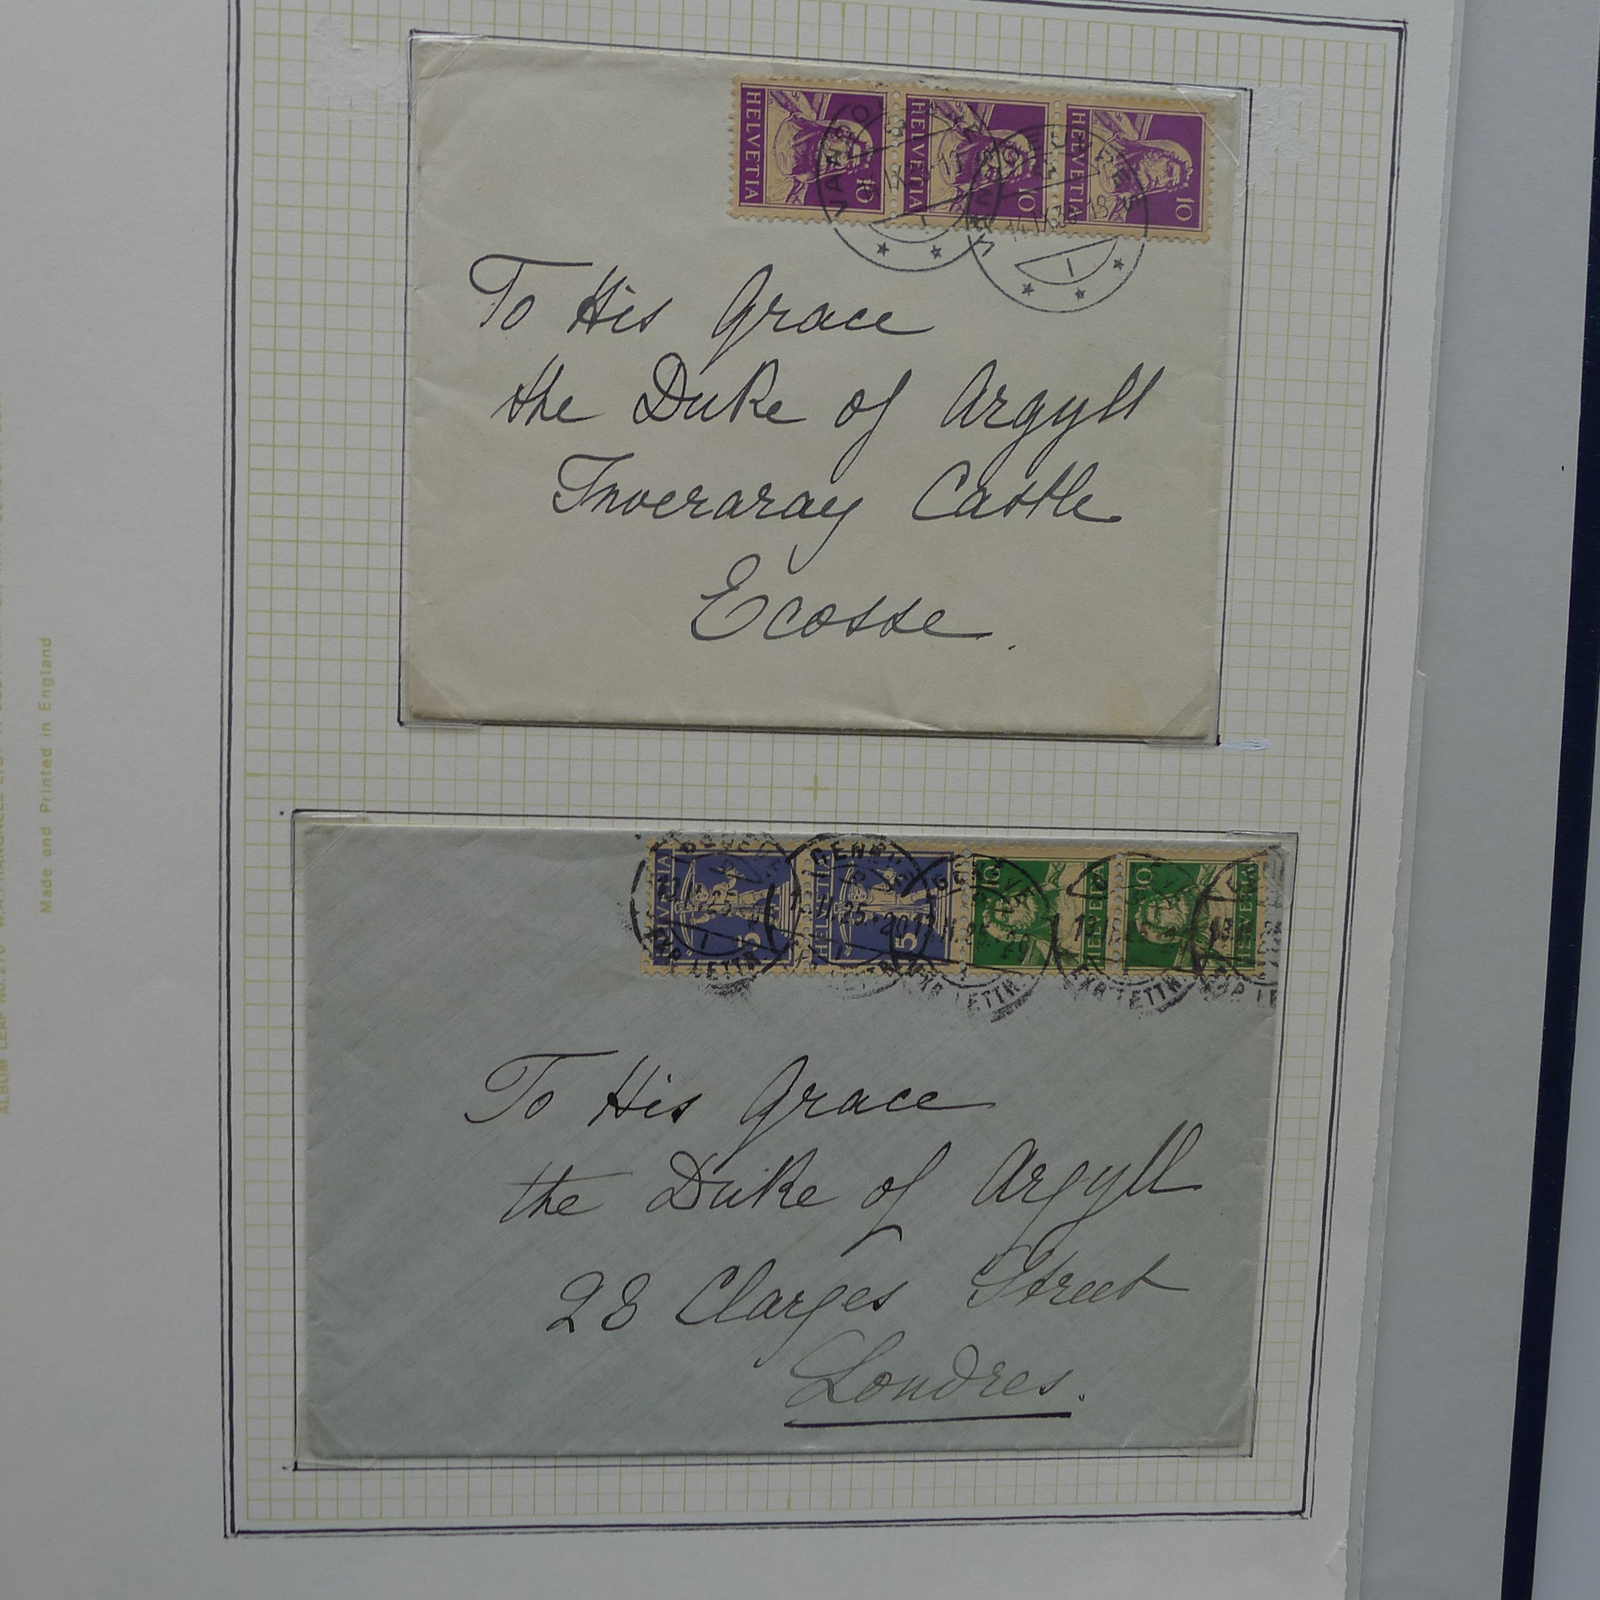 HELVETIA 10 HELVETIA 10 HELVETIA 10
To His Grace
the Duke of Argyll
Inveraray Castle
Ecosse.
HELVETIA 5 HELVETIA 5 10 HELVETIA 10 HELVETIA
To His Grace
the Duke of Argyll
28 Clarges Street
Londres.
Made and Printed in England